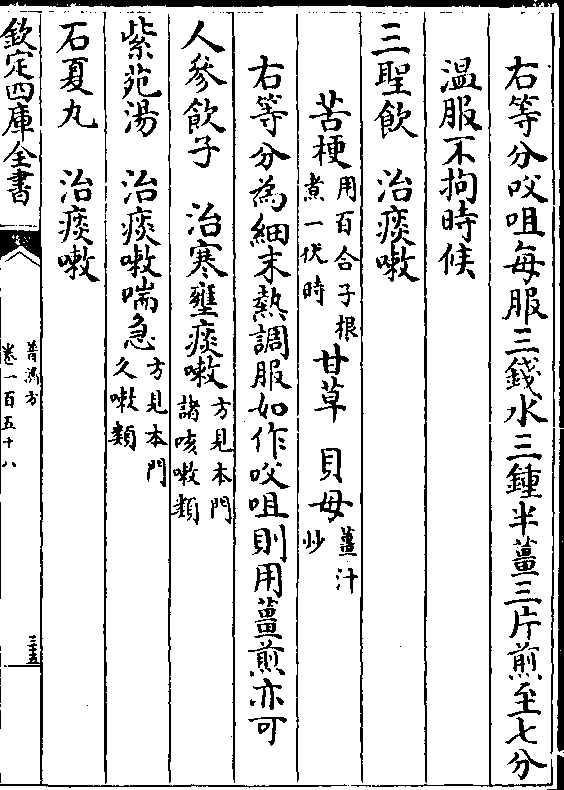 右等分㕮咀每服三錢水三鍾半薑三片煎至七分
温服不拘時候
三聖飲　治痰嗽
苦梗用百合子根煮一伏時甘草　貝母薑汁炒
右等分為細末熱調服如作㕮咀則用薑煎亦可
人參飲子　治寒壅痰嗽方見本門諸咳嗽類
紫苑湯　治痰嗽喘急方見本門久嗽類
石夏丸　治痰嗽
欽定四庫全書
普濟方
卷一百五十八
三五